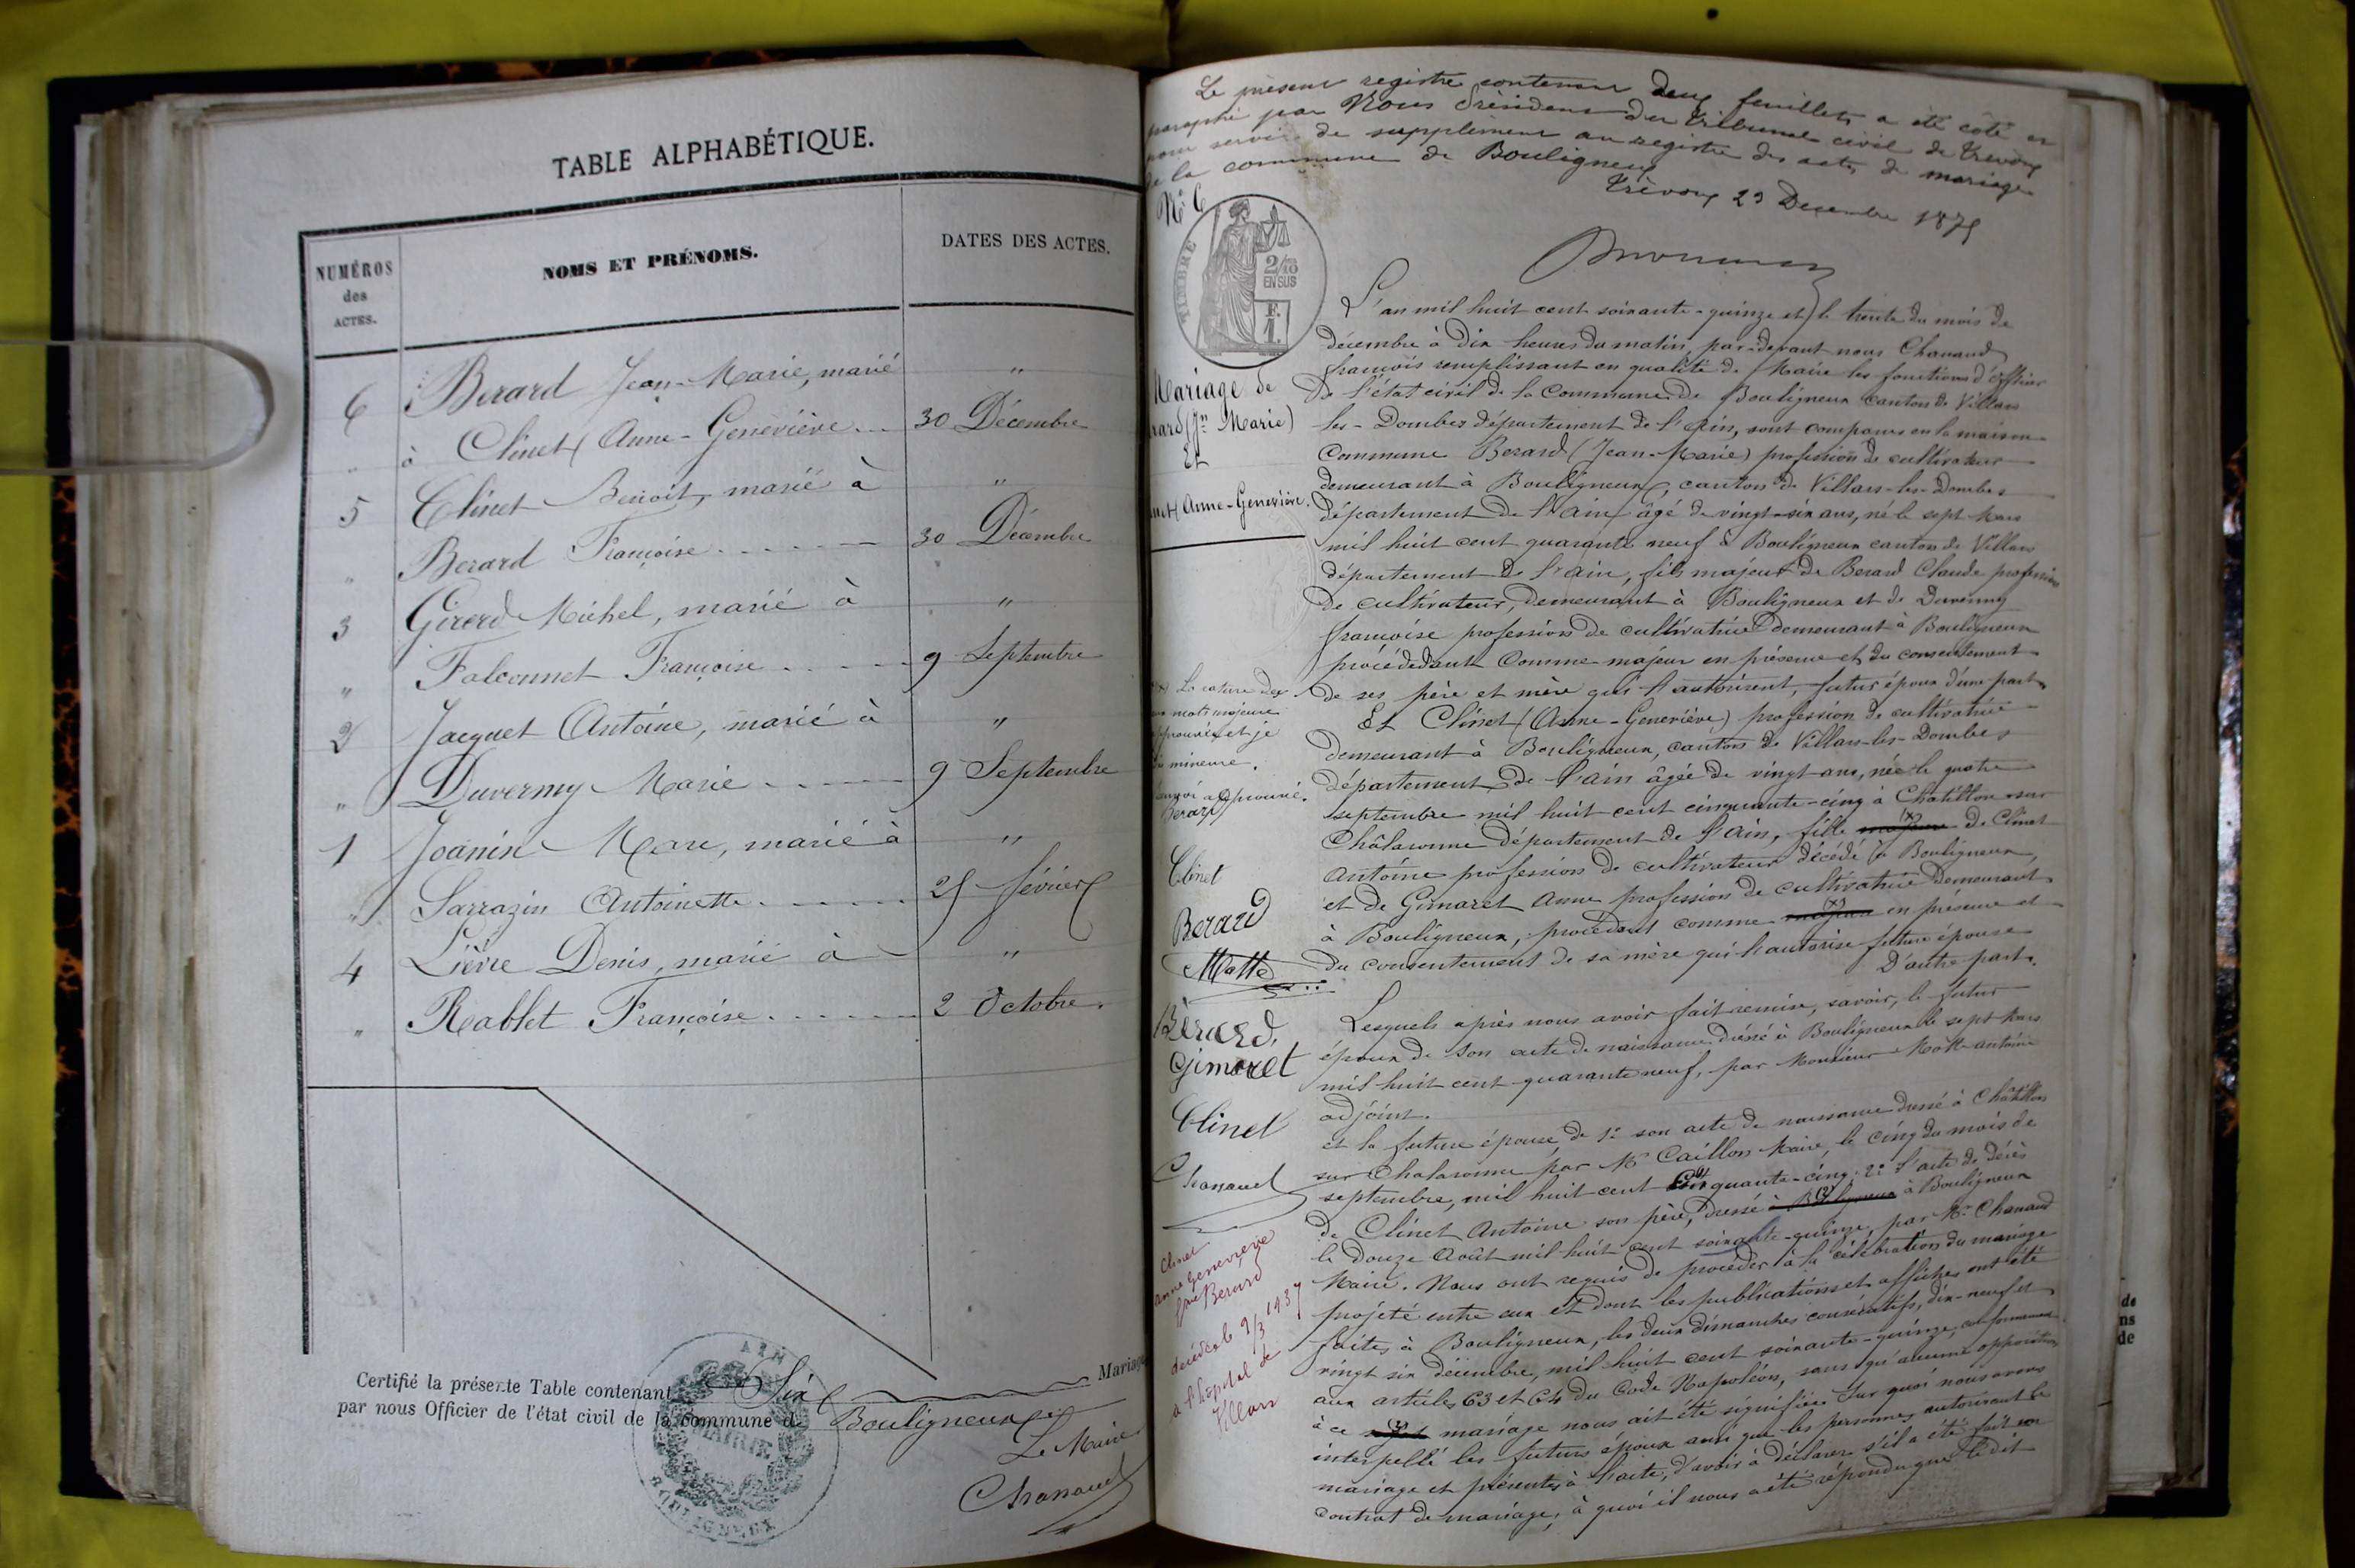 TABLE ALPHABÉTIQUE.
NUMÉROS des ACTES.
NOMS ET PRÉNOMS.
DATES DES ACTES.
6 Berard Jean-Marie, marié "
" à Clinet (Anne-Geneviève... 30 Décembre
5 Clinet Benoit, marié à "
" Berard Françoise..... 30 Décembre
3 Girerd Michel, marié à "
" Falconnet Françoise..... 9 Septembre
2 Jacquet Antoine, marié à "
" Duvernay Marie..... 9 Septembre
1 Joanin Marc, marié à "
" Sarrazin Antoinette..... 25 février
4 Lièvre Denis, marié à "
" Rablet Françoise...... 2 Octobre.
Certifié la présente Table contenant Six Mariage
par nous Officier de l'état civil de la commune de Bouligneux
Le Maire
Chanaud
AIN
MAIRIE
BOULIGNEUX
Le présent registre contenant deux feuillets a été coté et
paraphé par Nous Président du Tribunal civil de Trévoux
pour servir de supplément au registre des actes de mariage
de la commune de Bouligneux
Trévoux 29 Decembre 1875
N° 6
TIMBRE
2/10
EN SUS
F.
1.
Mariage de
(Jn Marie)
Et
Anne-Geneviève.
L'an mil huit cent soixante-quinze et le trente du mois de
décembre à dix heures du matin, par-devant nous Chanaud
françois remplissant en qualité de Maire les fonctions d'officier
de l'état civil de la Commune de Bouligneux canton de Villars
les-Dombes département de l'ain, sont comparus en la maison
Commune Berard (Jean-Marie) profession de cultivateur
demeurant à Bouligneux, canton de Villars-les-Dombes
département de l'ain âgé de vingt-six ans, né le sept Mars
mil huit cent quarante neuf à Bouligneux canton de Villars
département de l'ain, fils majeur de Berard Claude profession
de cultivateur, demeurant à Bouligneux et de Duvernay
françoise profession de cultivatrice demeurant à Bouligneux
procédedant comme majeur en présence et du consentement
de ses père et mère qui l'autorisent, futur époux d'une part
Et Clinet (Anne-Geneviève) profession de cultivatrice
demeurant à Bouligneux, canton de Villars-les-Dombes
département de l'ain âgée de vingt ans, née le quatre
septembre mil huit cent cinquante-cinq à Chatillon-sur
Châlaronne département de l'ain, fille majeure (x) de Clinet
antoine profession de cultivateur décédé à Bouligneux,
et de Gimaret Anne profession de cultivatrice demeurant
à Bouligneux, procédant comme majeure (x) en présence et
du consentement de sa mère qui l'autorise future épouse
D'autre part.
Lesquels après nous avoir fait remise, savoir, le futur
époux de son acte de naissance dressé à Bouligneux le sept Mars
mil huit cent quarante neuf, par Monsieur Motte antoine
adjoint.
et la future épouse, de 1° son acte de naissance dressé à Châtillon
sur Chalaronne par Mr Caillon Maire, le cinq du mois de
septembre, mil huit cent Cinquante-cinq; 2° l'acte de décès
de Clinet Antoine son père, dressé à Bouligneux à Bouligneux
le douze Août mil huit cent soixante-quinze, par Mr Chanaud
Maire. Nous ont requis de procéder à la célébration du mariage
projeté entre eux et dont les publications et affiches ont été
faites à Bouligneux, les deux dimanches consécutifs, dix-neuf et
vingt six décembre, mil huit cent soixante-quinze, conformément
aux articles 63 et 64 du Code Napoléon, sans qu'aucune opposition
à ce mariage nous ait été signifiée. Sur quoi nous avons
interpellé les futurs époux ainsi que les personnes autorisant le
mariage et présentes à l'acte, d'avoir à déclarer s'il a été fait un
contrat de mariage, à quoi il nous a été répondu que le dit
(x) La rature des
mots majeure
approuvée et je
dis mineure.
renvoi approuvé.
Berard
Clinet
Berard
Motte
Bèrard.
Gimaret
Clinet
Chanaud
Clinet
Anne Geneviève
fme Berard
décédée le 9/3 1937
à l'hôpital de
Villars
de
ns
de